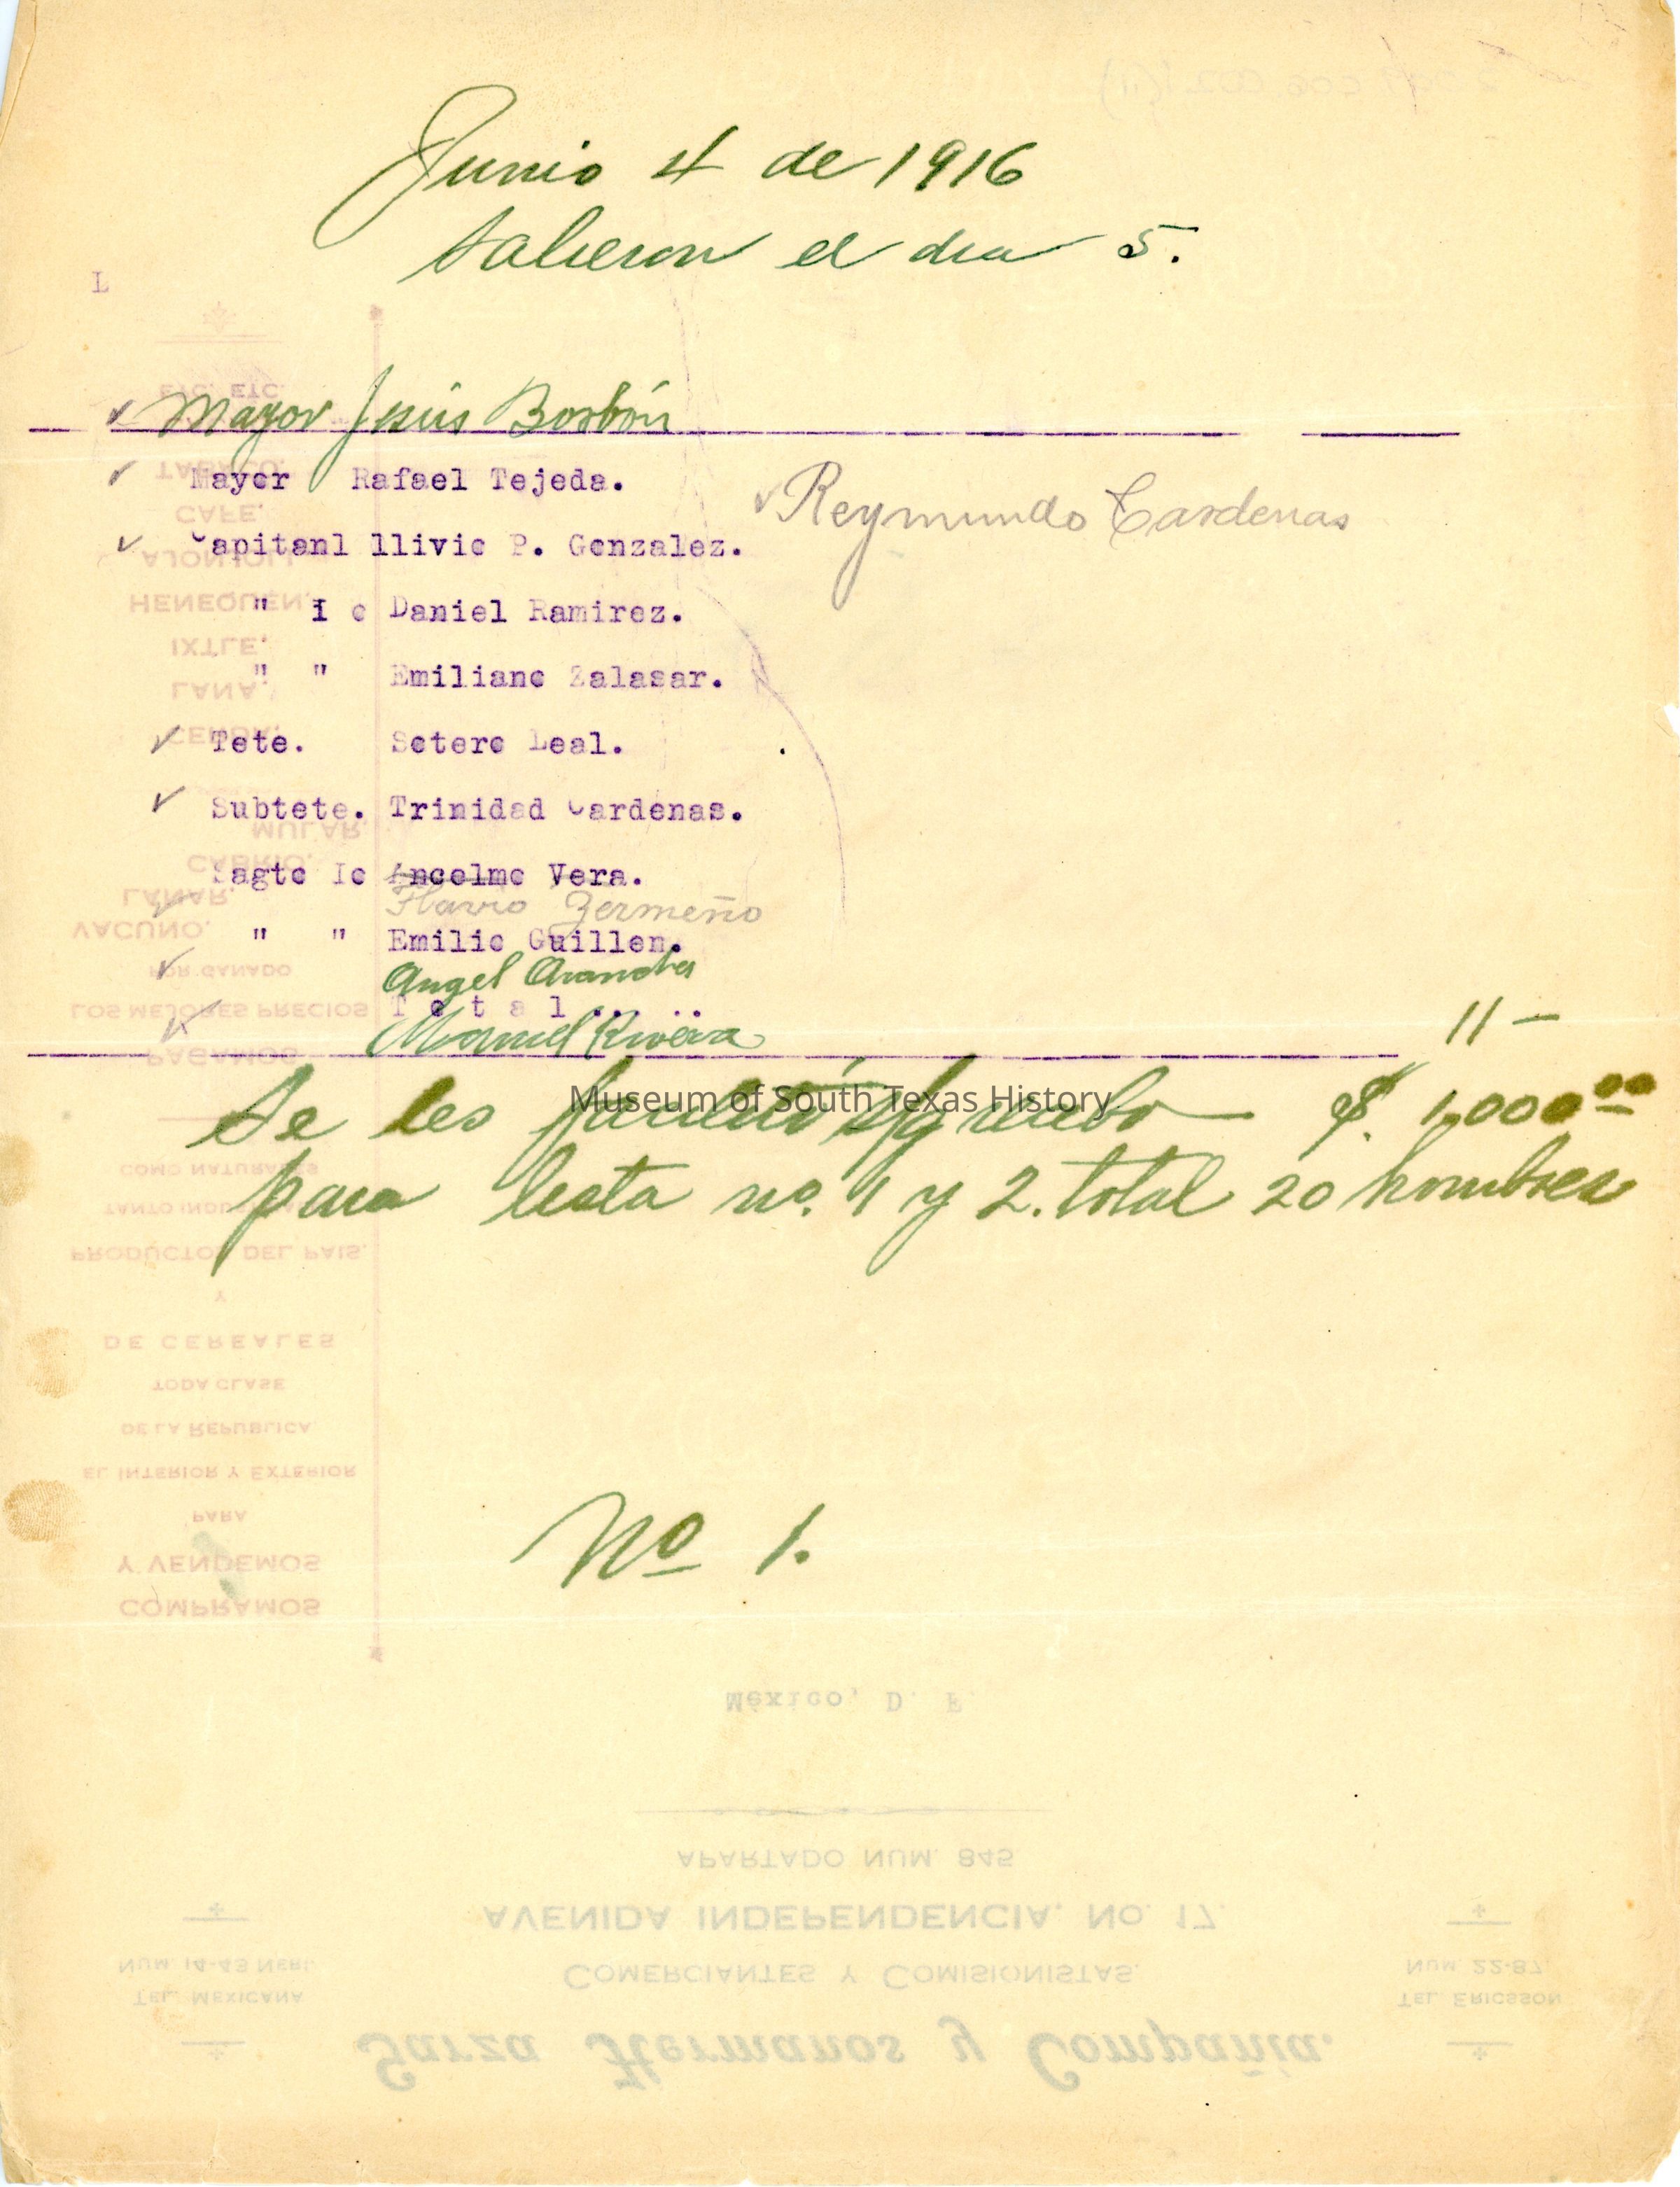 Junio 4 de 1916
Salieron el dia 5.
L
Mayor Jesús Borbón
Mayor Rafael Tejeda.
Reymundo Cardenas
Capitan1 llivio P. Gonzalez.
" I o Daniel Ramirez.
" " Emiliano Zalasar.
Tete. Sotero Leal.
Subtete. Trinidad Cardenas.
Sagto Io Ancelmo Vera.
Flavio Zermeño
" " Emilio Guillen.
Angel
T o t a l . . . .
Manuel Rivera
11 —
Se les recibo $. 1,000 00
para lista no. 1 y 2. total 20 hombres
Museum of South Texas History
No 1.
ETC. ETC.
TABACO,
CAFE,
AJONJOLI,
HENEQUEN,
IXTLE,
LANA,
CERDA,
MULAR,
CABRIO,
LANAR,
VACUNO,
POR GANADO
LOS MEJORES PRECIOS
PAGAMOS
COMO NATURALES
TANTO
PRODUCTOS DEL PAIS.
Y
DE CEREALES
TODA CLASE
DE LA REPUBLICA
EL INTERIOR Y EXTERIOR
PARA
Y VENDEMOS
COMPRAMOS
México, D. F.
APARTADO NUM. 845
AVENIDA INDEPENDENCIA, NO. 17.
COMERCIANTES Y COMISIONISTAS.
NUM. 14-43 NERI.
TEL. MEXICANA
NUM. 22-87.
TEL. ERICSSON
Garza Hermanos y Compañia.